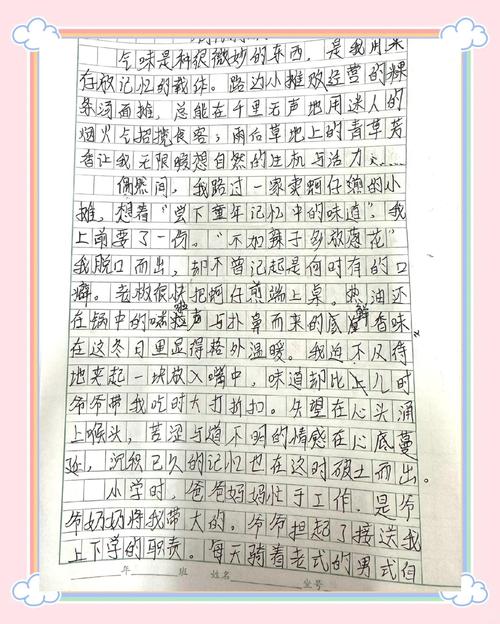 气味是种很微妙的东西，是我用来
存放记忆的载体。路边小摊贩经营的粿
条汤面摊，总能在千里无声地用迷人的
烟火气招揽食客；雨后草地上的青草芳
香让我无限暇想自然的生机与活力……
偶然间，我路过一家卖蚵仔煎的小
摊，想着“尝下童年记忆中的味道”，我
上前要了一份。“不加辣子多放葱花”
我脱口而出，却不曾记起是何时有的口
癖。老板很快把蚵仔煎端上桌。热油还
在锅中的噼啪声与扑鼻而来的海鲜香味
在这冬日里显得格外温暖。我迫不及待
地夹起一块放入嘴中，味道却比上儿时
爷爷带我吃时大打折扣。失望在心头涌
上喉头，苦涩与道不明的情感在心底蔓
延，沉积已久的记忆也在这时破土而出。
小学时，爸爸妈妈忙于工作，是爷
爷奶奶将我带大的。爷爷担起了接送我
上下学的职责。每天骑着老式的男式自
年 班 姓名 坐号